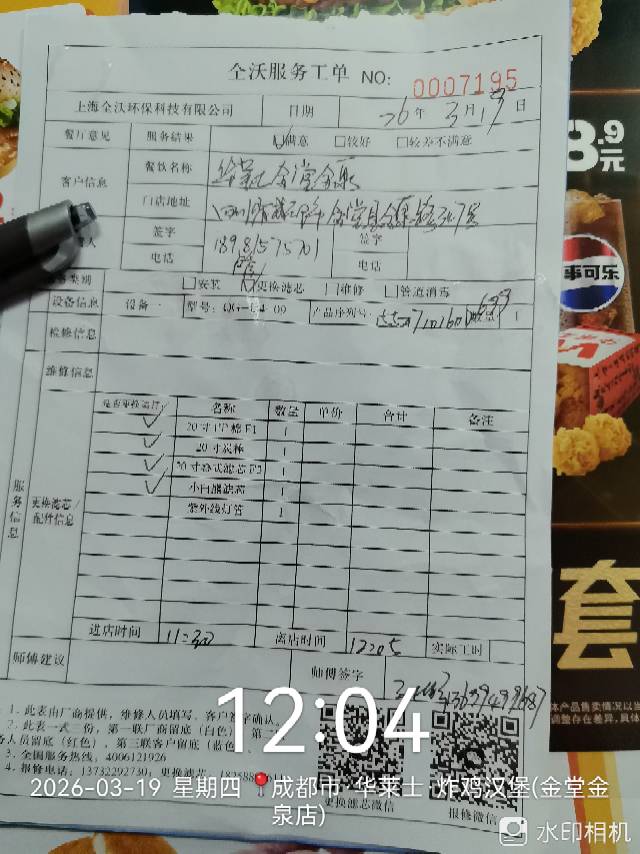 全沃服务工单 NO: 0007195
上海全沃环保科技有限公司 日期 26年3月19日
餐厅意见 服务结果 满意 □较好 □较差不满意
客户信息 餐饮名称 华莱士金堂金泉
门店地址
签字 签字
电话 电话
18981575701
□安装 更换滤芯 □维修 □管道消毒
设备信息 设备 型号: 产品序列号:
检修信息
维修信息
名称 数量 单价 合计 备注
20寸PP棉F1 1
20寸炭棒 1
1
小白熊滤芯 1
紫外线灯管 1
服务信息
更换滤芯/配件信息
进店时间 11:30 离店时间 12:05 实际工时
师傅建议 师傅签字
1. 此表由厂商提供,维修人员填写,客户签字确认。
2. 此表一式三份,第一联厂商留底(白色)
人员留底(红色),第三联客户留底(蓝色
3. 全国服务热线:4006121926
4. 报修电话:13732292730; 更换滤芯
更换滤芯微信 报修微信
12:04
2026-03-19 星期四 成都市·华莱士·炸鸡汉堡(金堂金泉店)
水印相机
8.9元
事可乐
套
本产品售卖情况以当
调整存在差异,具体